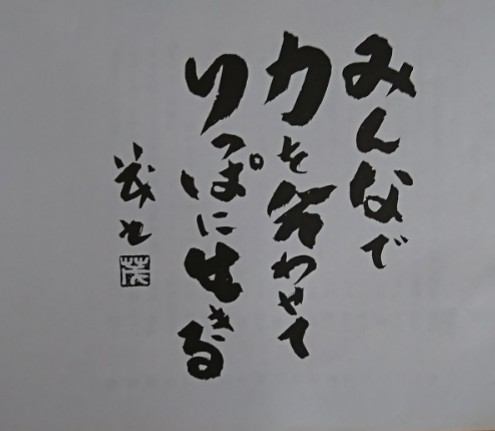 みんなで
力を合わせて
りっぱに生きる